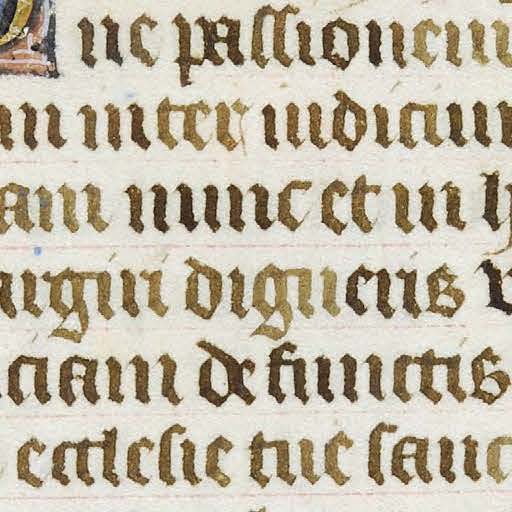 ne passionem
m inter iudicium
am nunc et in h
argiri digneris v
ciam defunctis
ecclesie tue sanc